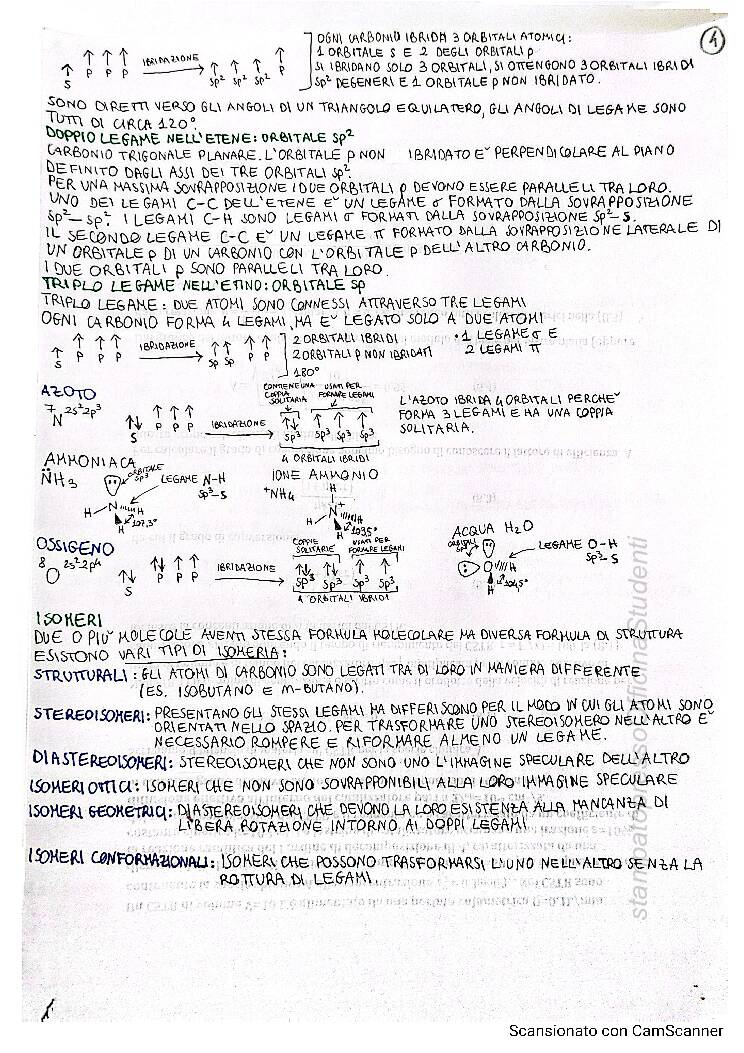 1
↑ S ↑ P ↑ P ↑ P IBRIDAZIONE → ↑ sp² ↑ sp² ↑ sp² ↑ P
OGNI CARBONIO IBRIDA 3 ORBITALI ATOMICI:
1 ORBITALE S E 2 DEGLI ORBITALI P
SI IBRIDANO SOLO 3 ORBITALI, SI OTTENGONO 3 ORBITALI IBRIDI
sp² DEGENERI E 1 ORBITALE P NON IBRIDATO.
SONO DIRETTI VERSO GLI ANGOLI DI UN TRIANGOLO EQUILATERO, GLI ANGOLI DI LEGAME SONO
TUTTI DI CIRCA 120°.
DOPPIO LEGAME NELL'ETENE: ORBITALE sp²
CARBONIO TRIGONALE PLANARE. L'ORBITALE P NON IBRIDATO E' PERPENDICOLARE AL PIANO
DEFINITO DAGLI ASSI DEI TRE ORBITALI sp².
PER UNA MASSIMA SOVRAPPOSIZIONE I DUE ORBITALI P DEVONO ESSERE PARALLELI TRA LORO.
UNO DEI LEGAMI C-C DELL'ETENE E' UN LEGAME σ FORMATO DALLA SOVRAPPOSIZIONE
sp²-sp². I LEGAMI C-H SONO LEGAMI σ FORMATI DALLA SOVRAPPOSIZIONE sp²-s.
IL SECONDO LEGAME C-C E' UN LEGAME π FORMATO DALLA SOVRAPPOSIZIONE LATERALE DI
UN ORBITALE P DI UN CARBONIO CON L'ORBITALE P DELL'ALTRO CARBONIO.
I DUE ORBITALI P SONO PARALLELI TRA LORO.
TRIPLO LEGAME NELL'ETINO: ORBITALE sp
TRIPLO LEGAME: DUE ATOMI SONO CONNESSI ATTRAVERSO TRE LEGAMI
OGNI CARBONIO FORMA 4 LEGAMI, MA E' LEGATO SOLO A DUE ATOMI
↑ S ↑ P ↑ P ↑ P IBRIDAZIONE → ↑ sp ↑ sp ↑ P ↑ P
2 ORBITALI IBRIDI
2 ORBITALI P NON IBRIDATI
180°
• 1 LEGAME σ E
2 LEGAMI π
AZOTO
7 N 2s² 2p³
↑↓ S ↑ P ↑ P ↑ P IBRIDAZIONE →
CONTIENE UNA COPPIA SOLITARIA
USATI PER FORMARE LEGAMI
↑↓ sp³ ↑ sp³ ↑ sp³ ↑ sp³
4 ORBITALI IBRIDI
L'AZOTO IBRIDA 4 ORBITALI PERCHE'
FORMA 3 LEGAMI E HA UNA COPPIA
SOLITARIA.
AMMONIACA
N̈H₃
ORBITALE sp³
LEGAME N-H
sp³-s
H N H
H 107,3°
IONE AMMONIO
⁺NH₄
H
H N⁺ H
H 109,5°
OSSIGENO
8 O 2s² 2p⁴
↑↓ S ↑↓ P ↑ P ↑ P IBRIDAZIONE →
COPPIE SOLITARIE
USATI PER FORMARE LEGAMI
↑↓ sp³ ↑↓ sp³ ↑ sp³ ↑ sp³
4 ORBITALI IBRIDI
ACQUA H₂O
ORBITALI sp³
LEGAME O-H
sp³-s
O H
H 104,5°
ISOMERI
DUE O PIU' MOLECOLE AVENTI STESSA FORMULA MOLECOLARE MA DIVERSA FORMULA DI STRUTTURA
ESISTONO VARI TIPI DI ISOMERIA:
STRUTTURALI: GLI ATOMI DI CARBONIO SONO LEGATI TRA DI LORO IN MANIERA DIFFERENTE
(ES. ISOBUTANO E m-BUTANO).
STEREOISOMERI: PRESENTANO GLI STESSI LEGAMI MA DIFFERISCONO PER IL MODO IN CUI GLI ATOMI SONO
ORIENTATI NELLO SPAZIO. PER TRASFORMARE UNO STEREOISOMERO NELL'ALTRO E'
NECESSARIO ROMPERE E RIFORMARE ALMENO UN LEGAME.
DIASTEREOISOMERI: STEREOISOMERI CHE NON SONO UNO L'IMMAGINE SPECULARE DELL'ALTRO
ISOMERI OTTICI: ISOMERI CHE NON SONO SOVRAPPONIBILI ALLA LORO IMMAGINE SPECULARE
ISOMERI GEOMETRICI: DIASTEREOISOMERI CHE DEVONO LA LORO ESISTENZA ALLA MANCANZA DI
LIBERA ROTAZIONE INTORNO AI DOPPI LEGAMI
ISOMERI CONFORMAZIONALI: ISOMERI CHE POSSONO TRASFORMARSI L'UNO NELL'ALTRO SENZA LA
ROTTURA DI LEGAMI.
Scansionato con CamScanner